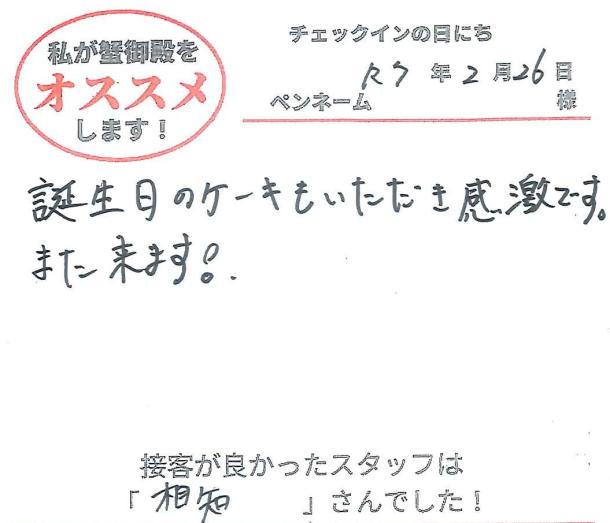 私が蟹御殿を
オススメ
します！
チェックインの日にち
R7年2月26日
ペンネーム 様
誕生日のケーキもいただき感激です。
また来ます!。
接客が良かったスタッフは
「相知」さんでした！